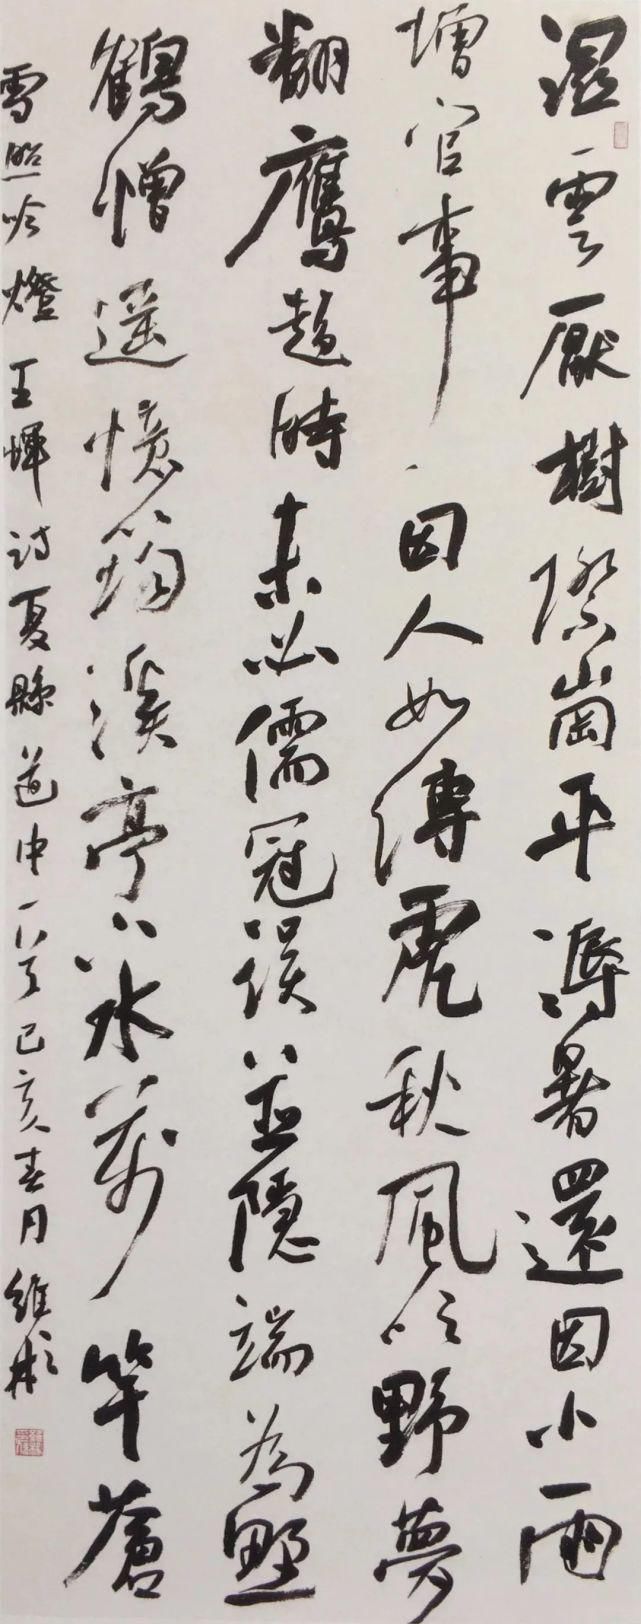 濕雲厭樹際崗平溽暑還因小雨
增官事囚人如縛虎秋風吹野夢
翻鷹趁時未必儒冠誤並隱端為野
鶴憎遥憶筠溪亭下水萬竿蒼
雪照吟燈王惲詩夏縣道中一首己亥春月維彬